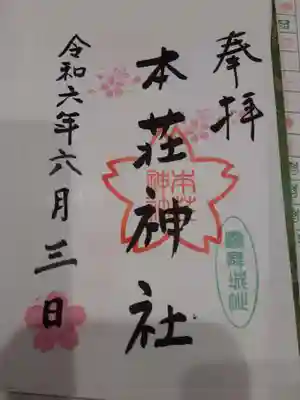 奉拝
本荘神社
本荘神社
令和六年六月三日